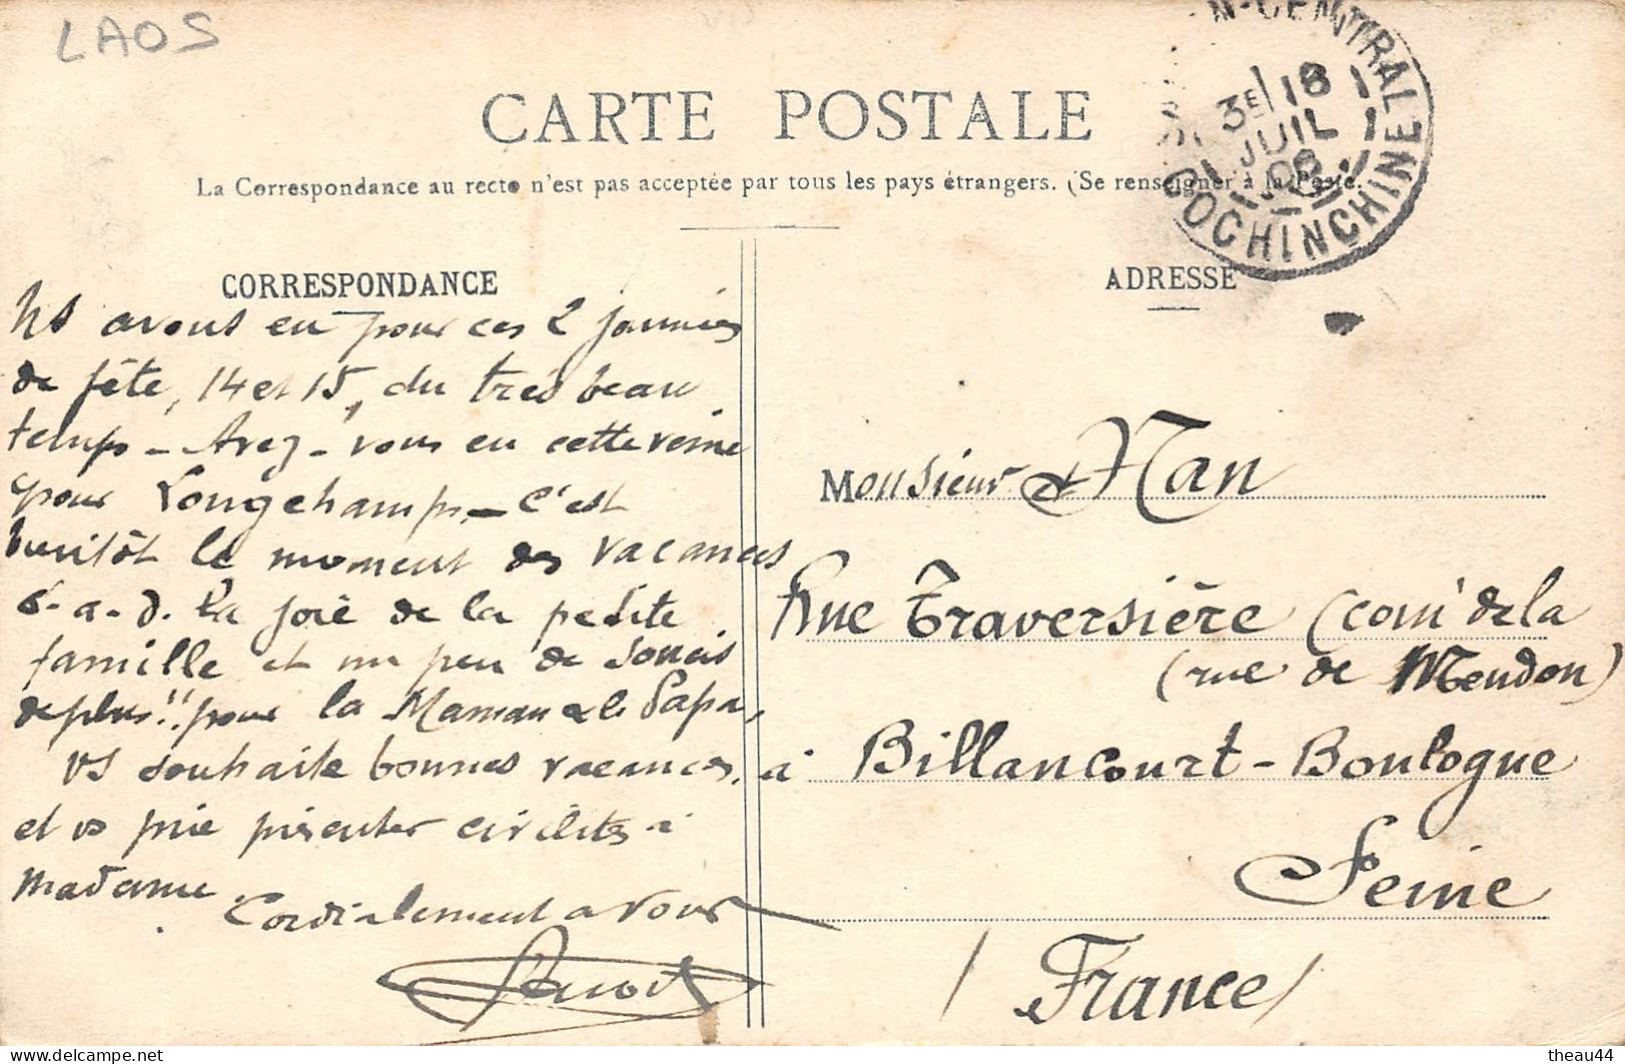 LAOS
N-CENTRAL
3E 18
JUIL
08
COCHINCHINE
CARTE POSTALE
La Correspondance au recto n'est pas acceptée par tous les pays étrangers. (Se renseigner à la Poste.
CORRESPONDANCE
ns avons eu pour ces 2 journées
de fête, 14 et 15, du très beau
temps - Avez-vous eu cette veine
pour Longchamps - C'est
bientôt le moment des vacances
c.a.d. la joie de la petite
famille et un peu de soucis
de plus!! pour la Maman & le Papa,
vs souhaite bonnes vacances,
et vs prie présenter civilités à
Madame.
Cordialement a vous
ADRESSE
Monsieur Nan
Rue Traversière (coin de la
(rue de Meudon)
à Billancourt-Boulogne
Seine
/ France /
theau44